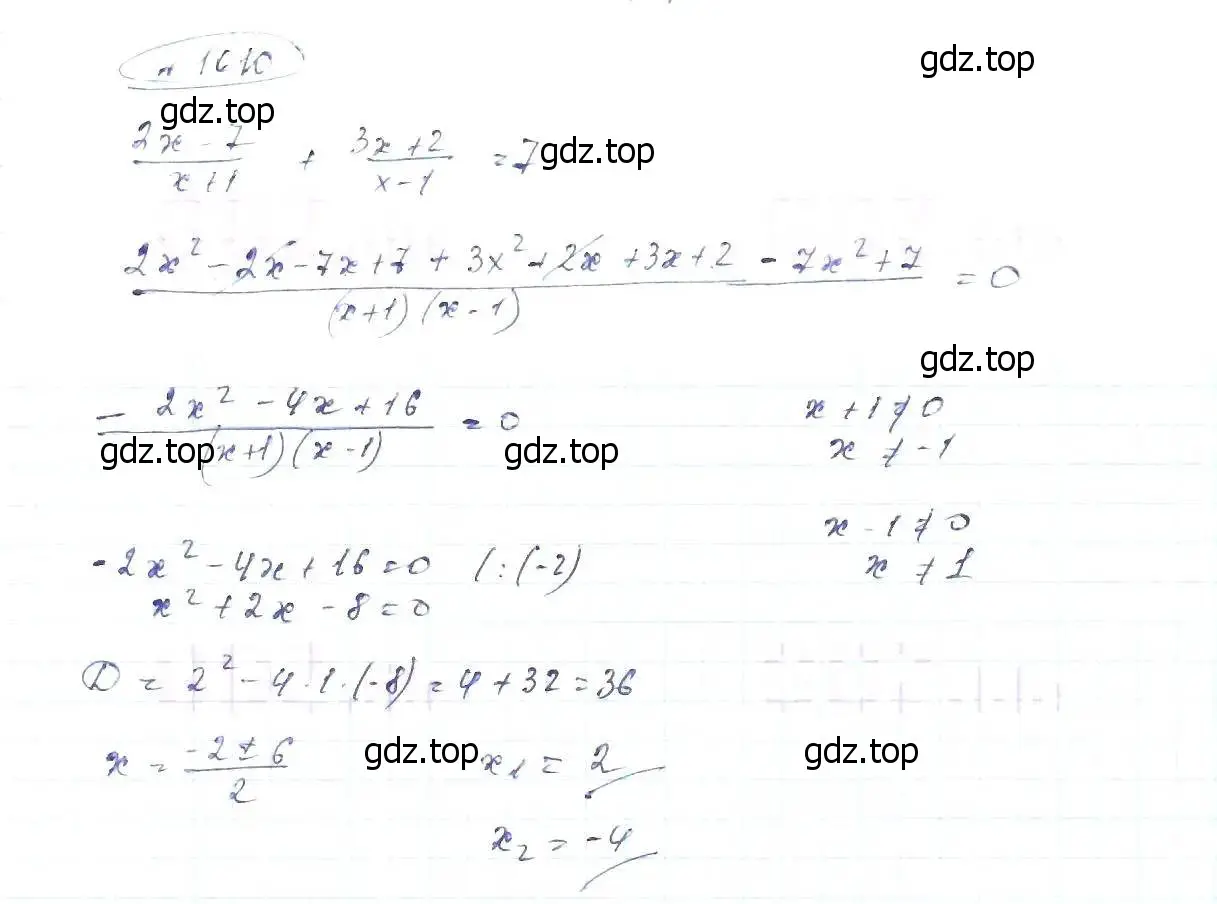 № 1610
gdz.top
gdz.top
(2x - 7)/(x + 1) + (3x + 2)/(x - 1) = 7
gdz.top
(2x² - 2x - 7x + 7 + 3x² + 2x + 3x + 2 - 7x² + 7)/((x+1)(x-1)) = 0
gdz.top
(- 2x² - 4x + 16)/((x+1)(x-1)) = 0
x + 1 ≠ 0
gdz.top
gdz.top
x ≠ -1
x - 1 ≠ 0
-2x² - 4x + 16 = 0 /:(-2)
x ≠ 1
x² + 2x - 8 = 0
D = 2² - 4·1·(-8) = 4 + 32 = 36
x = (-2 ± 6)/2
gdz.top
x₁ = 2
gdz.top
x₂ = -4